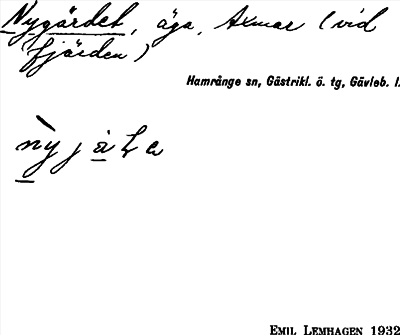 Nygärdet, äga, Axmar (vid
fjärden)
Hamrånge sn, Gästrikl. ö. tg, Gävleb. l.
Emil Lemhagen 1932